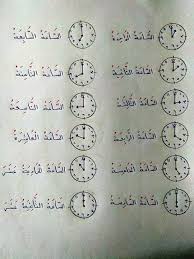 السَّاعَةُ
السَّاعَةُ السَّابِعَةُ
السَّاعَةُ الثَّانِيَةُ
السَّاعَةُ الثَّامِنَةُ
السَّاعَةُ الثَّالِثَةُ
السَّاعَةُ التَّاسِعَةُ
السَّاعَةُ الرَّابِعَةُ
السَّاعَةُ الْعَاشِرَةُ
السَّاعَةُ الْخَامِسَةُ
السَّاعَةُ الْحَادِيَةَ عَشَرَ
السَّاعَةُ السَّادِسَةُ
السَّاعَةُ الثَّانِيَةَ عَشَرَ